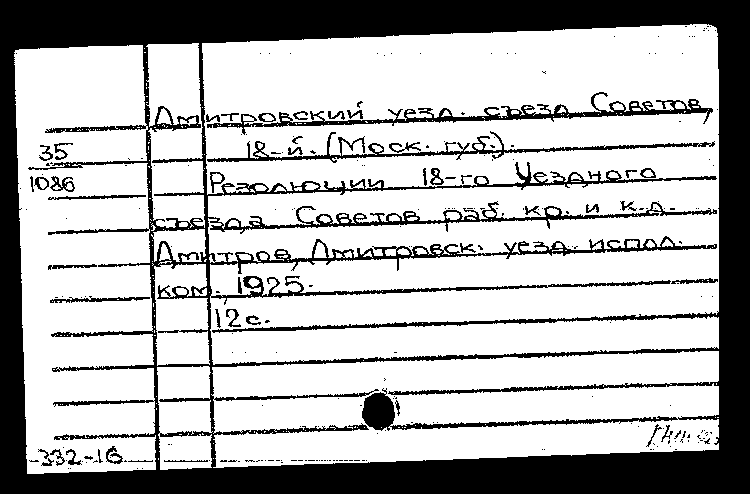 Дмитровский уезд. съезд Советов,
18-й. (Моск. губ.).
35
1086
Резолюции 18-го Уездного
съезда Советов раб. кр. и к.д.
Дмитров, Дмитровск. уезд. испол.
ком., 1925.
12 с.
-332-16